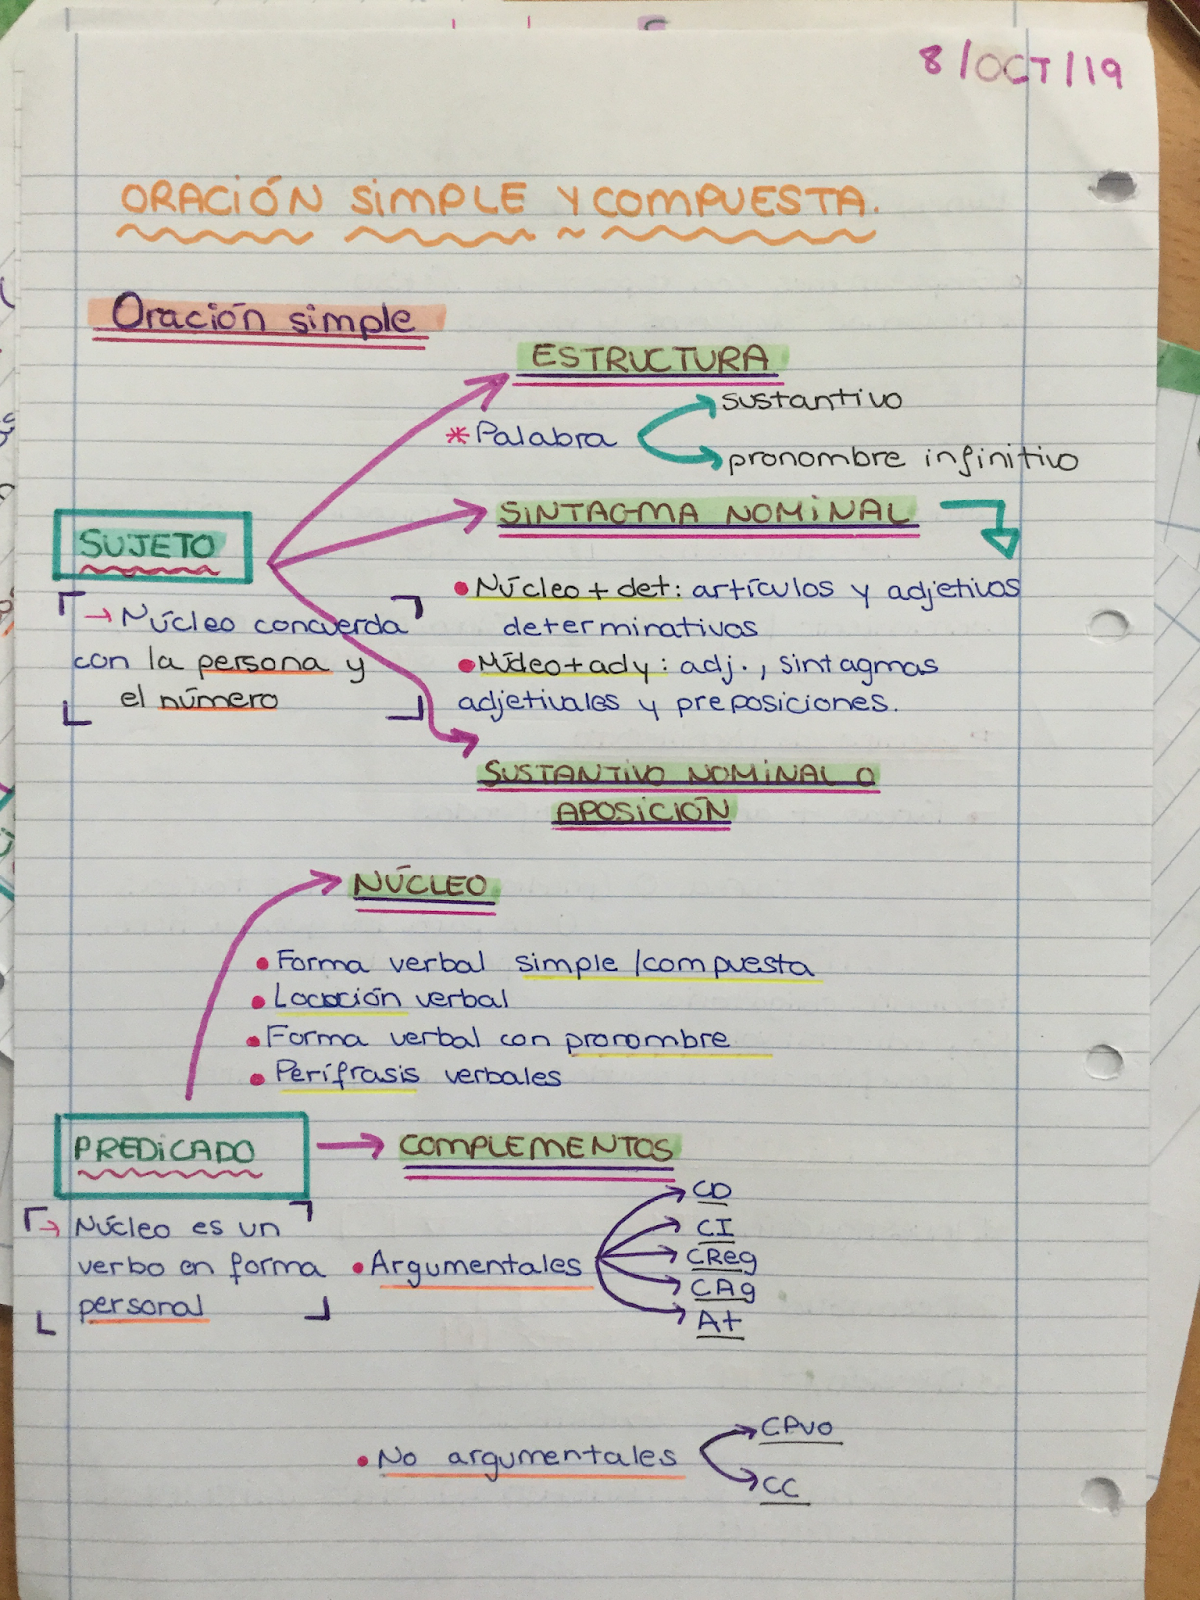 8/OCT/19
ORACIÓN SIMPLE Y COMPUESTA.
Oración simple
ESTRUCTURA
sustantivo
*Palabra
pronombre infinitivo
SINTAGMA NOMINAL
SUJETO
• Núcleo + det: artículos y adjetivos
determinativos
→ Núcleo concuerda
con la persona y
el número
• Núcleo + ady: adj., sintagmas
adjetivales y preposiciones.
SUSTANTIVO NOMINAL O
APOSICIÓN
NÚCLEO
• Forma verbal simple/compuesta
• Locución verbal
• Forma verbal con pronombre
• Perífrasis verbales
PREDICADO
→ COMPLEMENTOS
→ Núcleo es un
verbo en forma
personal
• Argumentales
CD
CI
CReg
CAg
At
• No argumentales
CPvo
CC